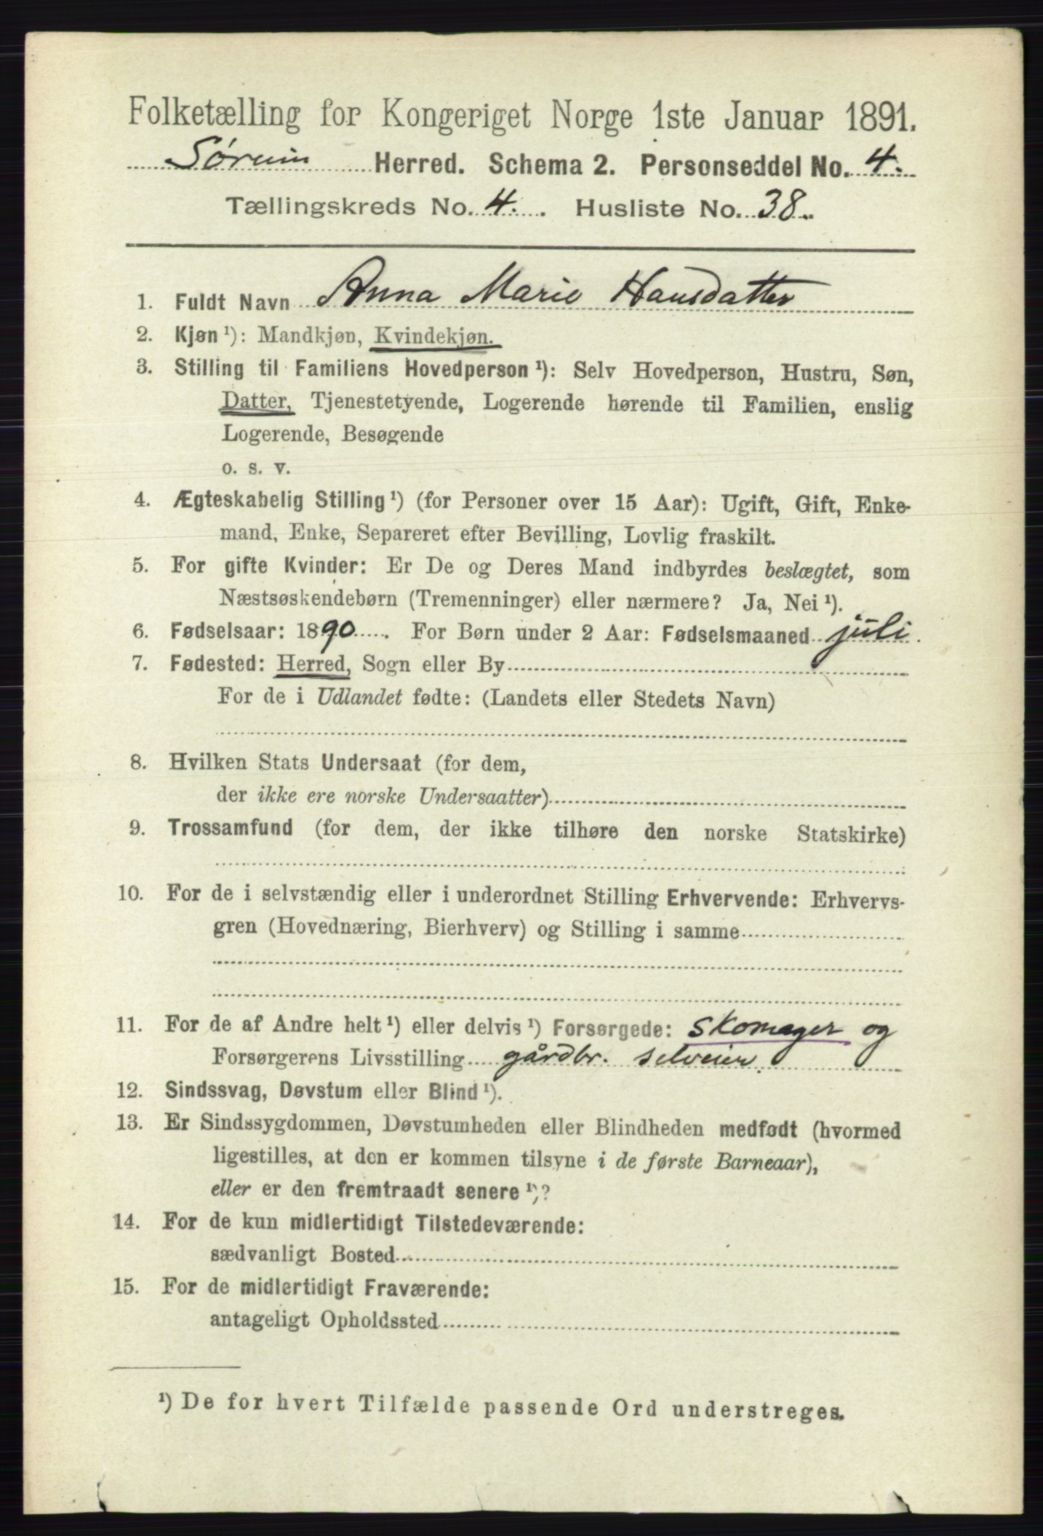 Folketælling for Kongeriget Norge 1ste Januar 1891.
Sørum Herred. Schema 2. Personseddel No. 4.
Tællingskreds No. 4. Husliste No. 38.
1. Fuldt Navn Anna Marie Hansdatter
2. Kjøn ¹): Mandkjøn, Kvindekjøn.
3. Stilling til Familiens Hovedperson ¹): Selv Hovedperson, Hustru, Søn,
Datter, Tjenestetyende, Logerende hørende til Familien, enslig
Logerende, Besøgende
o. s. v.
4. Ægteskabelig Stilling ¹) (for Personer over 15 Aar): Ugift, Gift, Enke-
mand, Enke, Separeret efter Bevilling, Lovlig fraskilt.
5. For gifte Kvinder: Er De og Deres Mand indbyrdes beslægtet, som
Næstsøskendebørn (Tremenninger) eller nærmere? Ja, Nei ¹).
6. Fødselsaar: 1890. For Børn under 2 Aar: Fødselsmaaned juli.
7. Fødested: Herred, Sogn eller By
For de i Udlandet fødte: (Landets eller Stedets Navn)
8. Hvilken Stats Undersaat (for dem,
der ikke ere norske Undersaatter)
9. Trossamfund (for dem, der ikke tilhøre den norske Statskirke)
10. For de i selvstændig eller i underordnet Stilling Erhvervende: Erhvervs-
gren (Hovednæring, Bierhverv) og Stilling i samme
11. For de af Andre helt ¹) eller delvis ¹) Forsørgede: skomager og
Forsørgerens Livsstilling gårdbr. selveier.
12. Sindssvag, Døvstum eller Blind ¹).
13. Er Sindssygdommen, Døvstumheden eller Blindheden medfødt (hvormed
ligestilles, at den er kommen tilsyne i de første Barneaar),
eller er den fremtraadt senere ¹)?
14. For de kun midlertidigt Tilstedeværende:
sædvanligt Bosted
15. For de midlertidigt Fraværende:
antageligt Opholdssted
¹) De for hvert Tilfælde passende Ord understreges.